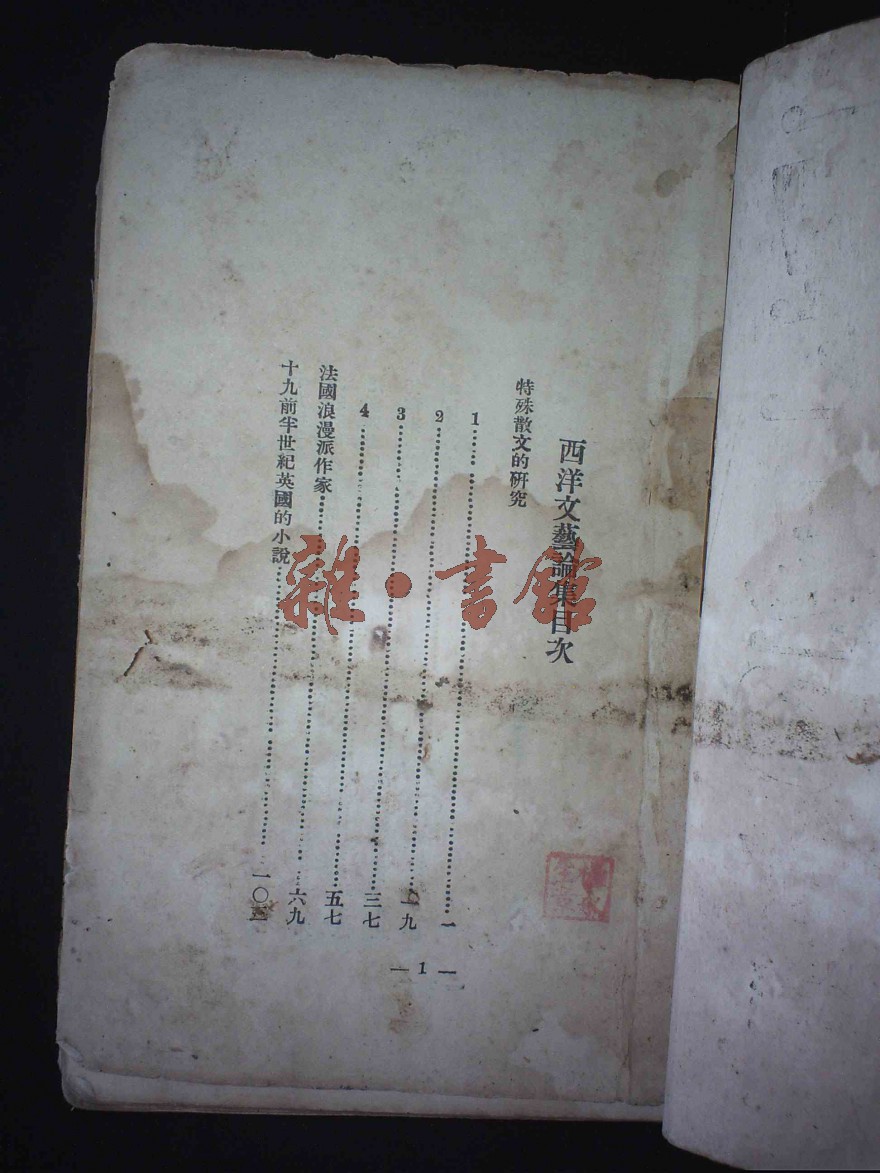 西洋文藝論集目次
特殊散文的研究
1⋯⋯⋯⋯一
2⋯⋯⋯⋯一九
3⋯⋯⋯⋯三七
4⋯⋯⋯⋯五七
法國浪漫派作家⋯⋯⋯⋯六九
十九前半世紀英國的小說⋯⋯⋯⋯一〇一
— 1 —
雜·書館